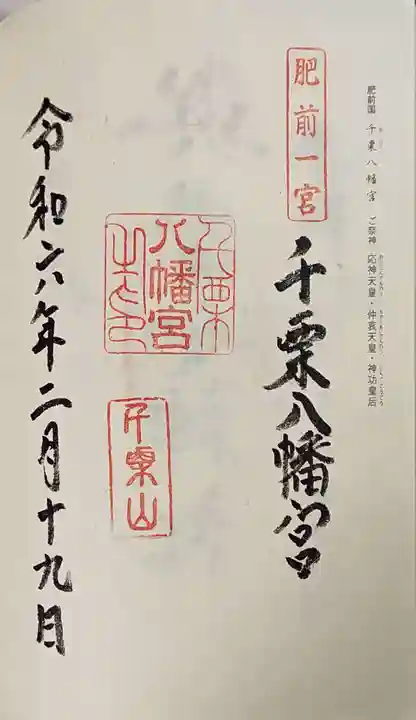 肥前国 千栗八幡宮 ご祭神 応神天皇・仲哀天皇・神功皇后
肥前一宮
千栗八幡宮
千栗
八幡宮
千栗山
令和六年二月十九日